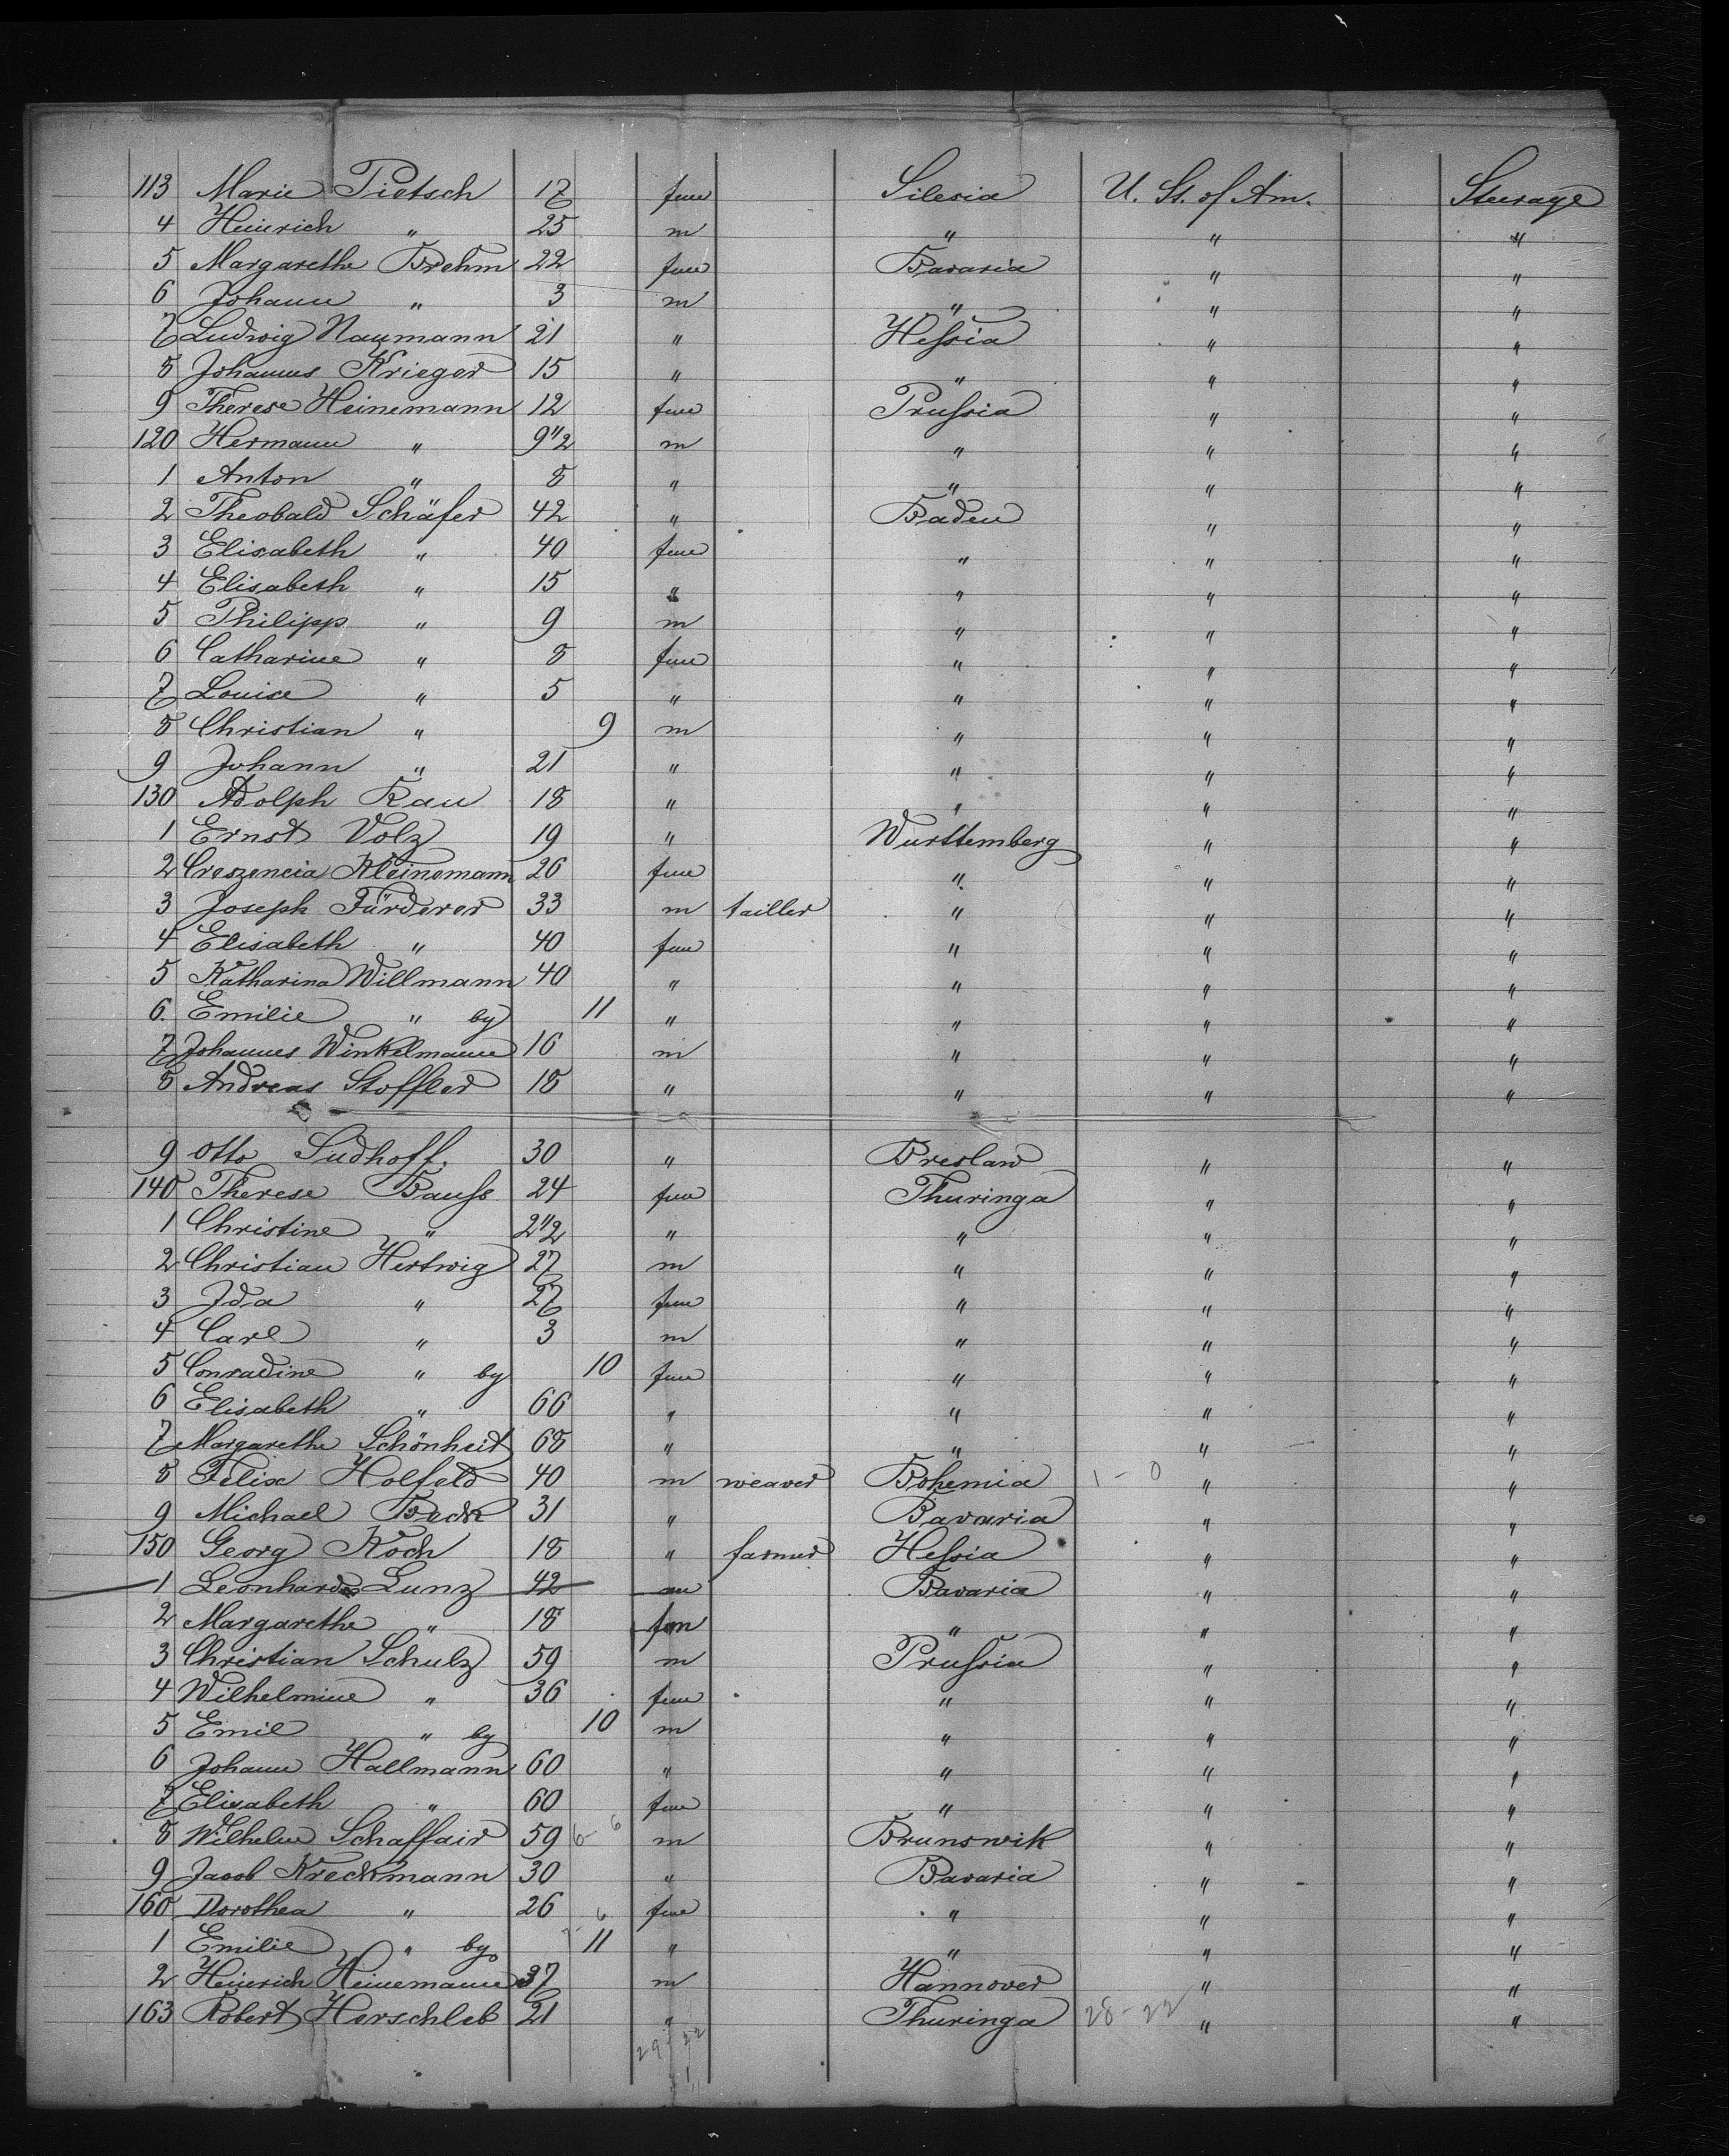 113 Marie Pietsch 17 fem Silesia U. St. of Am. Steerage
4 Heinrich " 25 m " " "
5 Margarethe Brehm 22 fem Bavaria " "
6 Johann " 3 m " " "
7 Ludwig Naumann 21 " Hessia " "
8 Johannes Krieger 15 " " " "
9 Therese Heinemann 12 fem Prussia " "
120 Hermann " 9 1/2 m " " "
1 Anton " 8 " " " "
2 Theobald Schäfer 42 " Baden " "
3 Elisabeth " 40 fem " " "
4 Elisabeth " 15 " " " "
5 Philipp " 9 m " " "
6 Catharine " 8 fem " " "
7 Louise " 5 " " " "
8 Christian " 9 m " " "
9 Johann " 21 " " " "
130 Adolph Rau 18 " " " "
1 Ernst Volz 19 " Wurttemberg " "
2 Creszencia Kleinemann 26 fem " " "
3 Joseph Fürderer 33 m tailler " " "
4 Elisabeth " 40 fem " " "
5 Katharina Willmann 40 " " " "
6. Emilie " by 11 " " " "
7 Johannes Winkelmann 16 m " " "
8 Andreas Stoffler 18 " " " "
9 Otto Sudhoff. 30 " Breslaw " "
140 Therese Bauss 24 fem Thuringa " "
1 Christine " 2 1/2 " " " "
2 Christian Hertwig 27 m " " "
3 Ida " 27 fem " " "
4 Carl " 3 m " " "
5 Conradine " by 10 fem " " "
6 Elisabeth " 66 " " " "
7 Margarethe Schönheit 68 " " " "
8 Felix Holfeld 40 m weaver Bohemia 1 - 0 " "
9 Michael Beck 31 " Bavaria " "
150 Georg Koch 18 " farmer Hessia " "
1 Leonhard Lunz 42 m Bavaria " "
2 Margarethe " 18 fem " " "
3 Christian Schulz 59 m Prussia " "
4 Wilhelmine " 36 fem " " "
5 Emil " by 10 m " " "
6 Johann Hallmann 60 " " " "
7 Elisabeth " 60 fem " " "
8 Wilhelm Schaffair 59 6 - 6 m Brunswik " "
9 Jacob Kreckmann 30 " Bavaria " "
160 Dorothea " 26 fem " " "
1 Emilie " by 11 " " " "
2 Heinrich Heinemann 37 m Hannover " "
163 Robert Herschleb 21 " Thuringa 28 - 22 " "
29 22
1